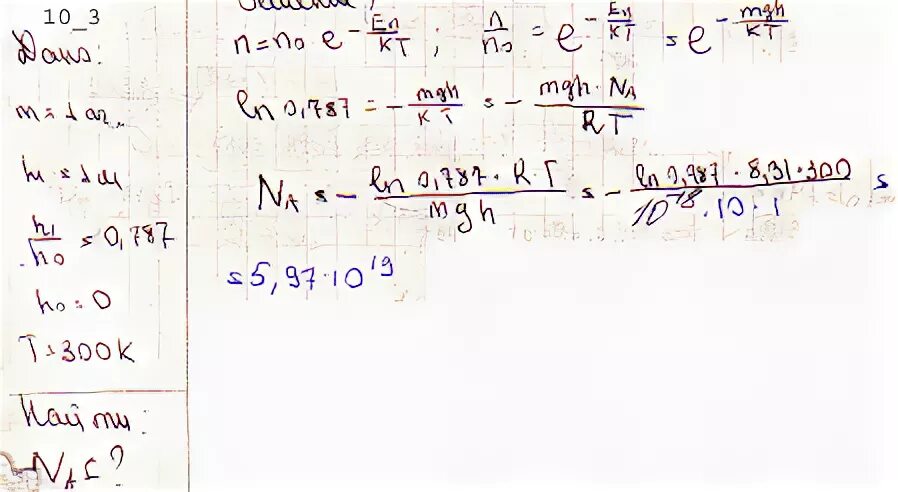 10_3
Дано:
m = 1 аг
h = 1 м
h₁/h₀ = 0,787
h₀ = 0
T = 300K
Найти:
N_A = ?
Решение:
n = n₀ e^(-Eп/KT) ; n/n₀ = e^(-Eп/KT) = e^(-mgh/KT)
ln 0,787 = - mgh/KT = - mgh · N_A/RT
N_A = - ln 0,787 · R · T/mgh = - ln 0,787 · 8,31 · 300/10^-18 · 10 · 1 =
= 5,97 · 10^19